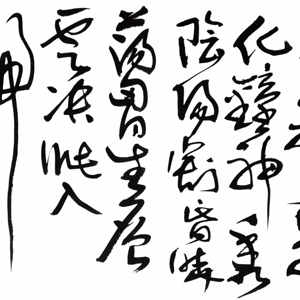 化鐘神秀
陰陽割昏曉
蕩胷生層
雲決眦入